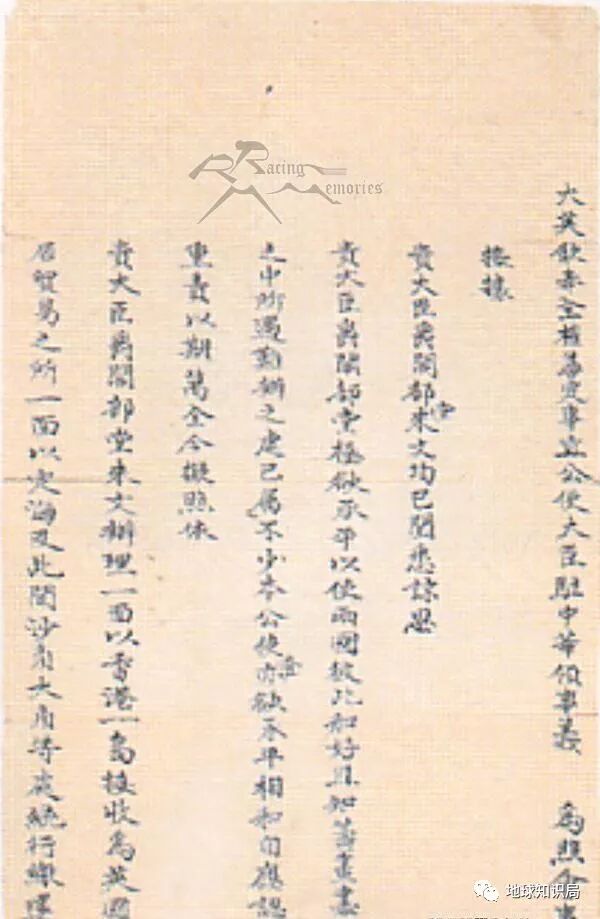 大英欽奉全權善定事宜公使大臣駐中華領事義 為照會
接據
貴大臣爵閣部堂來文均已閱悉諒思
貴大臣爵閣部堂極欲承平以使兩國彼此和好且知籌畫
之中所遇辦之處已屬不少本公使亦欲承平相和自應認
重責以期萬全今擬照依
貴大臣爵閣部堂來文辦理一面以香港一島接收為英國
居貿易之所一面以定海及此間沙角大角等處統行繳還
Racing
Memories
地球知识局